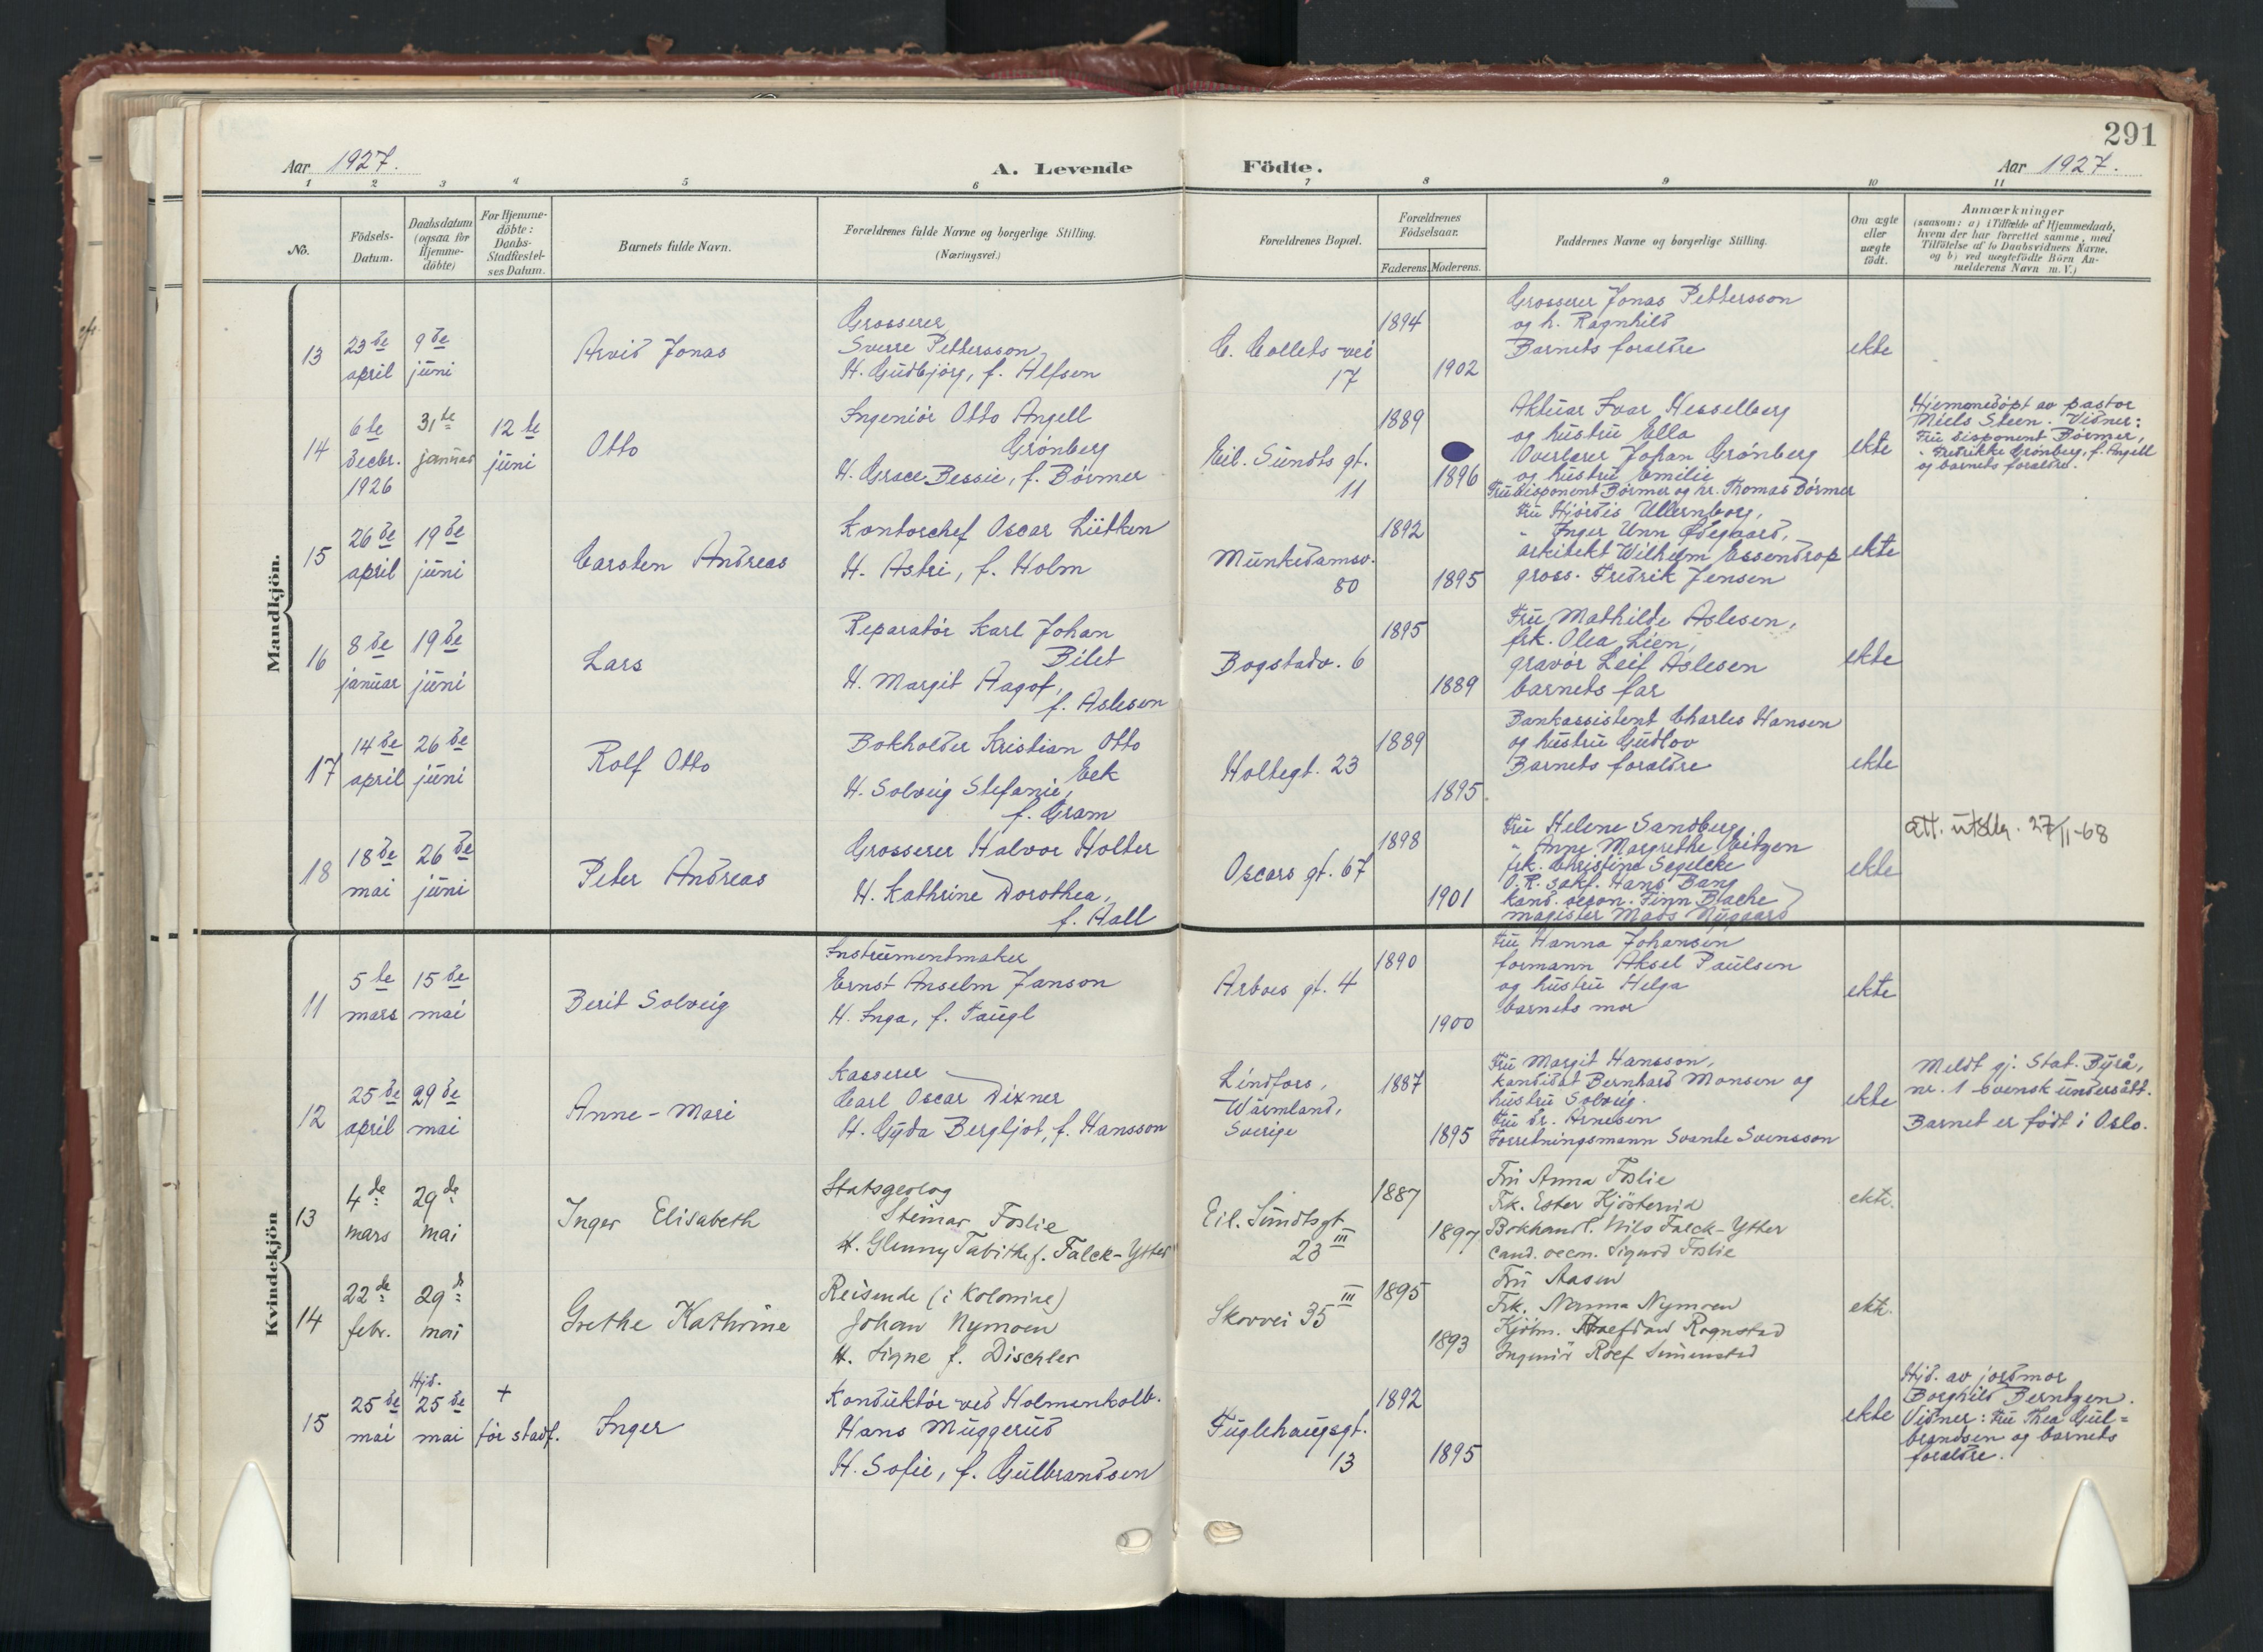 291
Aar 1927. A. Levende Födte. Aar 1927.
1 2 3 4 5 6 7 8 9 10 11
No.
Födsels-
Datum.
Daabsdatum
(ogsaa for
Hjemme-
döbte)
For Hjemme-
döbte:
Daabs-
Stadfæstel-
ses Datum.
Barnets fulde Navn.
Forældrenes fulde Navne og borgerlige Stilling.
(Næringsvei.)
Forældrenes Bopæl.
Forældrenes
Födselsaar.
Faderens. Moderens.
Faddernes Navne og borgerlige Stilling.
Om ægte
eller
uægte
födt.
Anmærkninger
(saasom: a) i Tilfælde af Hjemmedaab,
hvem der har forrettet samme, med
Tilföielse af to Daabsvidners Navne.
og b) ved uægtefödte Börn An-
melderens Navn m. V.)
Mandkjön.
13
23de
april
9de
juni
Arvid Jonas
Grosserer
Sverre Pettersson
H. Gudbjörg, f. Alfsen
C. Collets-vei
17
1894
1902
Grosserer Jonas Pettersson
og h. Ragnhild
Barnets foraldre
ekte
14
6te
decbr.
1926
31te
januar
12te
juni
Otto
Ingeniör Otto Angell
Grönberg
H. Grace Bessie, f. Börmer
Eil. Sundts gt.
11
1889
1896
Aktuar Ivar Hesselberg
og hustru Ella
Overlærer Johan Grönberg
og hustru Emilie
Fru disponent Börmer og hr. Thomas Börmer
ekte
Hjemmedöpt av pastor
Niels Steen. Vidner:
Fru disponent Börmer,
" Fredrikke Grönberg, f. Angell
og barnets foraldre.
15
26de
april
19de
juni
Carsten Andreas
Kontorchef Oscar Lütken
H. Astri, f. Holm
Munkedamsv.
80
1892
1895
Fru Hjördis Ullernborg,
" Inger Unn Ödegaard,
arkitekt Wilhelm Essendrop
gross. Fredrik Jensen
ekte
16
8de
januar
19de
juni
Lars
Reparatör Karl Johan
Bilet
H. Margit Aagot,
f. Aslesen
Bogstadv. 6
1895
1889
Fru Mathilde Aslesen,
frk. Olea Lien,
gravör Leif Aslesen
barnets far
ekte
17
14de
april
26de
juni
Rolf Otto
Bokholder Kristian Otto
Eek
H. Solveig Stefanie,
f. Gram
Holtegt. 23
1889
1895.
Bankassistent Charles Hansen
og hustru Gudlov
Barnets foraldre
ekte
18
18de
mai
26de
juni
Peter Andreas
Grosserer Halvor Holter
H. Kathrine Dorothea,
f. Aall
Oscars gt. 67
1898
1901
Fru Helene Sandberg
" Anne Margrethe Eitzen
frk. Christine Segelcke
O.R. sakf. Hans Bang
kand. oecon. Finn Blache
magister Mads Nygaard
ekte
att. utstk. 27/11-68
Kvindekjön
11
5te
mars
15de
mai
Berit Solveig
Instrumentmaker
Ernst Anselm Janson
H. Inga, f. Faugl
Arboes gt. 4
1890
1900
Fru Hanna Johansen
formann Aksel Paulsen
og hustru Helga
barnets mor
ekte
12
25de
april
29de
mai
Anne-Mari
Kasserer
Carl Oscar Dixner
H. Gyda Bergljot, f. Hansson
Lindfors,
Wärmland,
Sverige
1887
1895
Fru Margit Hansson,
kandidat Bernhard Monsen og
hustru Solveig.
Fru dr. Arnesen
Forretningsmann Svante Svensson
ekte
Meldt gj: Stat. Byrå,
nr. 1 svensk undersått.
Barnet er født i Oslo.
13
4de
mars
29de
mai
Inger Elisabeth
Statsgeolog
Steinar Foslie
H. Glenny Tabithe f. Falck-Ytter
Eil. Sundtsgt
23 III
1887
1897
Fru Anna Foslie
Frk. Ester Kjösterud
Bokhandl. Nils Falck-Ytter
cand. oecon. Sigurd Foslie
ekte.
14
22de
febr.
29de
mai
Grethe Kathrine
Reisende (i Kolonine)
Johan Nymoen
H. Signe f. Dischler
Skovvei 35 III
1895
1893
Fru Aasen
Frk. Nanna Nymoen
Kjöbm. Rognstad
Ingeniör Rolf Simenstad
ekte.
15
25de
mai
Hjd.
25de
mai
+
før stadf.
Inger
Konduktör ved Holmenkolb.
Hans Muggerud
H. Sofie, f. Gulbrandsen
Fuglehaugsgt.
13
1892
1895
ekte
Hjd. av jordmor
Borghild Berntzen.
Vidner: Fru Thea Gul=
brandsen og barnets
foraldre.